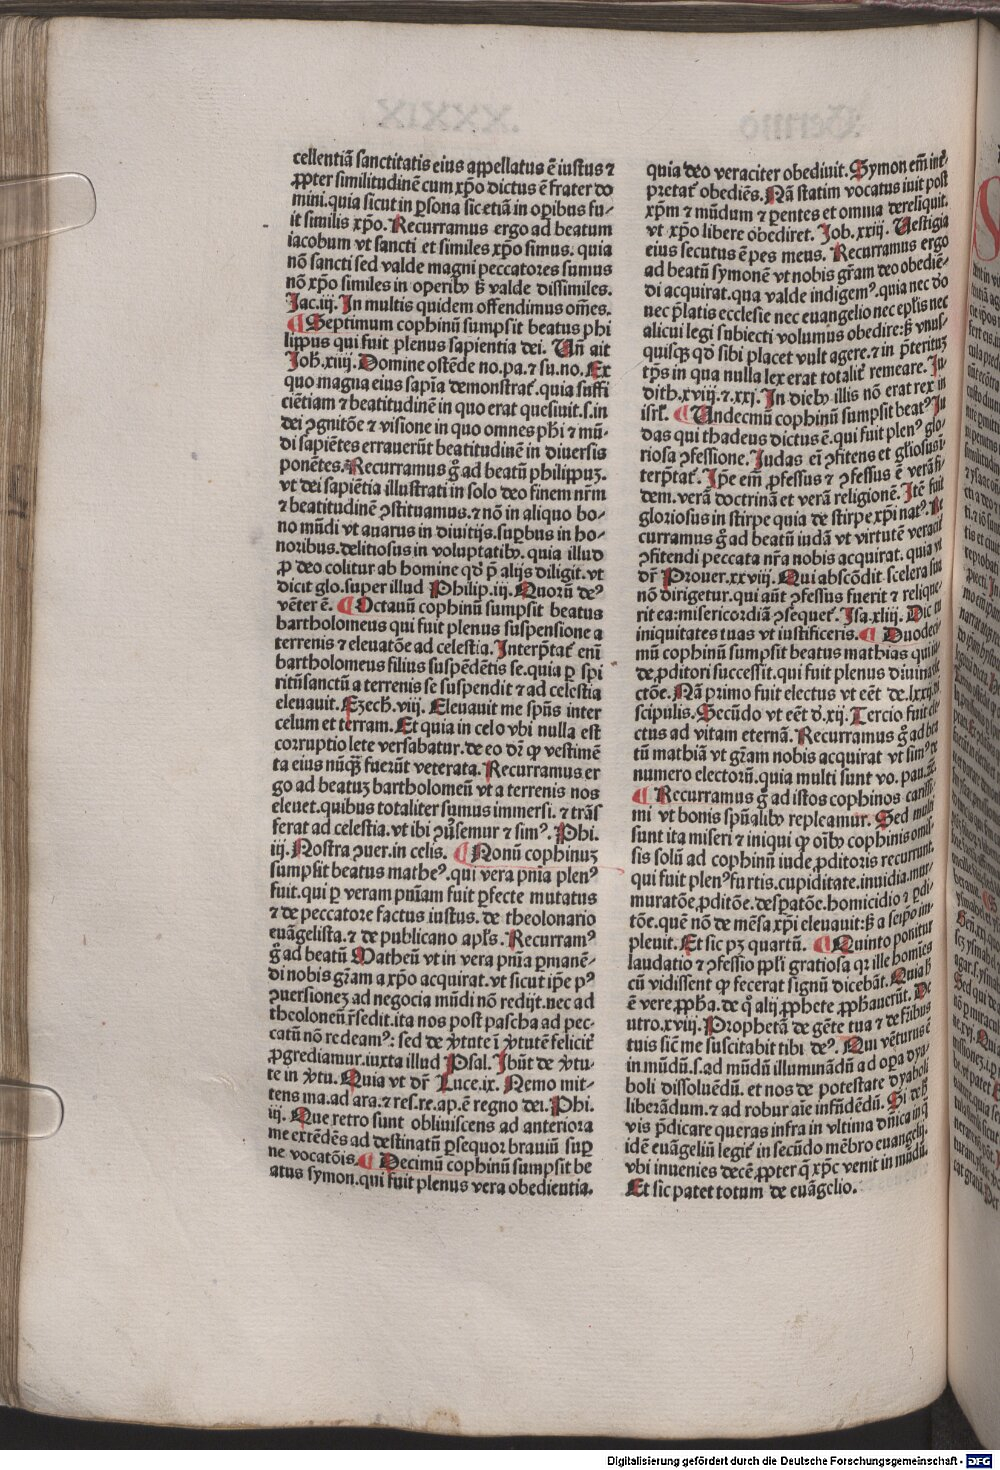 cellentiã sanctitatis eius appellatus ē iustus ⁊
ꝓpter similitudinē cum xp̄o dictus ē frater do
mini. quia sicut in ꝑsona sic etiã in operibus fu-
it similis xp̄o. Recurramus ergo ad beatum
iacobum vt sancti et similes xp̄o simus. quia
nō sancti sed valde magni peccatores sumus
nō xp̄o similes in operibꝰ sꝫ valde dissimiles.
Jac. iij. In multis quidem offendimus om̄es.
¶ Septimum cophinū sumpsit beatus phi
lippus qui fuit plenus sapientia dei. Vñ ait
Joh̄. xiiij. Domine ostēde no. pa. ⁊ su. no. Ex
quo magna eius sapīa demonstrat᷑. quia suffi
ciētiam ⁊ beatitudinē in quo erat quesiuit. s. in
dei ꝯgnitōe ⁊ visione in quo omnes ph̄i ⁊ mū-
di sapiētes errauerūt beatitudinē in diuersis
ponētes. Recurramus gͦ ad beatū philippuꝫ.
vt dei sapiētia illustrati in solo deo finem nr̄m
⁊ beatitudinē ꝯstituamus. ⁊ nō in aliquo bo-
no mūdi vt auarus in diuitijs. suꝑbus in ho-
noribus. delitiosus in voluptatibꝰ. quia illud
ꝓ deo colitur ab homine qd̄ p̄ alijs diligit. vt
dicit glo. super illud Philip. iij. Quorū deꝰ
vēter ē. ¶ Octauū cophinū sumpsit beatus
bartholomeus qui fuit plenus suspensione a
terrenis ⁊ eleuatōe ad celestia. Interp̄tat᷑ enī
bartholomeus filius suspēdētis se. quia ꝑ spi
ritū sanctū a terrenis se suspendit ⁊ ad celestia
eleuauit. Ezech̄. viij. Eleuauit me sp̄us inter
celum et terram. Et quia in celo vbi nulla est
corruptio lete versabatur. de eo dr̄ ꝙ vestimē
ta eius nūqꝫ fuerūt veterata. Recurramus er
go ad beatuꝫ bartholomeū vt a terrenis nos
eleuet. quibus totaliter sumus immersi. ⁊ trās
ferat ad celestia. vt ibi ꝯūsemur ⁊ simꝰ. Phi.
iij. Nostra ꝯuer. in celis. ¶ Nonū cophinuꝫ
sumpsit beatus matheꝰ. qui vera pn̄ia plenꝰ
fuit. qui ꝑ veram pn̄iam fuit ꝑfecte mutatus
⁊ de peccatore factus iustus. de theolonario
euãgelista. ⁊ de publicano apl̄s. Recurramꝰ
gͦ ad beatū Matheū vt in vera pn̄ia ꝑmanē-
di nobis gr̄am a xp̄o acquirat. vt sicut ip̄e pꝰ
ꝯuersionez ad negocia mūdi nō redijt. nec ad
theoloneū r̄sedit. ita nos post pascha ad pec-
catū nō redeamꝰ: sed de v̄tute ī v̄tutē felicit᷑
ꝓgrediamur. iuxta illud Psal. Ibūt de v̄tu-
te in v̄tu. Quia vt dr̄ Luce. ix. Nemo mit-
tens ma. ad ara. ⁊ res. re. ap. ē regno dei. Phi.
iij. Que retro sunt obliuiscens ad anteriora
me extēdēs ad destinatū ꝑsequor brauiū suꝑ
ne vocatōis. ¶ Decimū cophinū sumpsit be
atus symon. qui fuit plenus vera obedientia.
quia deo veraciter obediuit. Symon em̄ int᷑-
p̄etat᷑ obediēs. Nã statim vocatus iuit post
xp̄m ⁊ mūdum ⁊ ꝑentes et omnia dereliquit.
vt xp̄o libere obediret. Job. xxiij. Vestigia
eius secutus ē pes meus. Recurramus ergo
ad beatū symonē vt nobis gr̄am deo obediē-
di acquirat. qua valde indigemꝰ. quia nec do
nec p̄latis ecclesie nec euangelio nec epl̄is nec
alicui legi subiecti volumus obedire: sꝫ vnus-
quisqꝫ qd̄ sibi placet vult agere. ⁊ in p̄teritum
tp̄s in qua nulla lex erat totalit᷑ remeare. Ju-
dith. xviij. ⁊. xxj. In diebꝰ illis nō erat rex in
isrl̄. ¶ Undecimū cophinū sumpsit beatꝰ Ju
das qui thadeus dictus ē. qui fuit plenꝰ glo-
riosa ꝯfessione. Judas ei᷑ ꝯfitens et gl̄iosus ī-
terp̄tat᷑. Ip̄e em̄ ꝓfessus ⁊ ꝯfessus ē verã fi-
dem. verã doctrinã et verã religionē. Itē fuit
gloriosus in stirpe quia de stirpe xp̄i natꝰ. Re
curramus gͦ ad beatū iudã vt virtutē veracit᷑
ꝯfitendi peccata nr̄a nobis acquirat. quia vt
dr̄ Prouer. xxviij. Qui abscōdit scelera sua
nō dirigetur. qui aūt ꝯfessus fuerit ⁊ relique-
rit ea: misericordiã ꝯsequet᷑. Isa. xliij. Dic tu
iniquitates tuas vt iustificeris. ¶ Duodeci-
mū cophinū sumpsit beatus mathias qui iu-
de ꝓditori successit. qui fuit plenus diuina ele
ctōe. Nã primo fuit electus vt eēt de. lxxij. di
scipulis. Secūdo vt eēt d̄. xij. Tercio fuit ele-
ctus ad vitam eternã. Recurramus gͦ ad bea
tū mathiã vt gr̄am nobis acquirat vt simꝰ de
numero electorū. quia multi sunt vo. pau. ꝟo. elc.
¶ Recurramus gͦ ad istos cophinos carissi-
mi vt bonis spūalibꝰ repleamur. Sed multi
sunt ita miseri ⁊ iniqui ꝙ oībꝰ cophinis omis-
sis solū ad cophinū iude ꝓditoris recurrunt.
qui fuit plenꝰ furtis. cupiditate. inuidia. mur-
muratōe. ꝓditōe. despatōe. homicidio ⁊ ꝑdi-
tōe. quē nō de mēsa xp̄i eleuauit: sꝫ a seip̄o im-
pleuit. Et sic pꝫ quartū. ¶ Quinto ponitur
laudatio ⁊ ꝯfessio ppl̄i gratiosa qꝛ ille homīes
cū vidissent ꝙ fecerat signū dicebãt. Quia h̄
ē vere ꝓph̄a. de qͦ alij ꝓphete ꝓph̄auerūt. De
utro. xviij. Prophetã de gēte tua ⁊ de fr̄ibus
tuis sic̄ me suscitabit tibi deꝰ. Qui vēturus ē
in mūdū. s. ad mūdū illuminãdū ad oꝑa dya-
boli dissoluēdū. et nos de potestate dyaboli
liberãdum. ⁊ ad robur aīe infūdēdū. Si de h̄
vis p̄dicare queras infra in vltima dn̄ica in qͣ
idē euãgeliū legit᷑ in secūdo mēbro euangelij.
vbi inuenies decē ꝓpter qͥ xp̄c venit in mūdū.
Et sic patet totum de euãgelio.
Digitalisierung gefördert durch die Deutsche Forschungsgemeinschaft - DFG